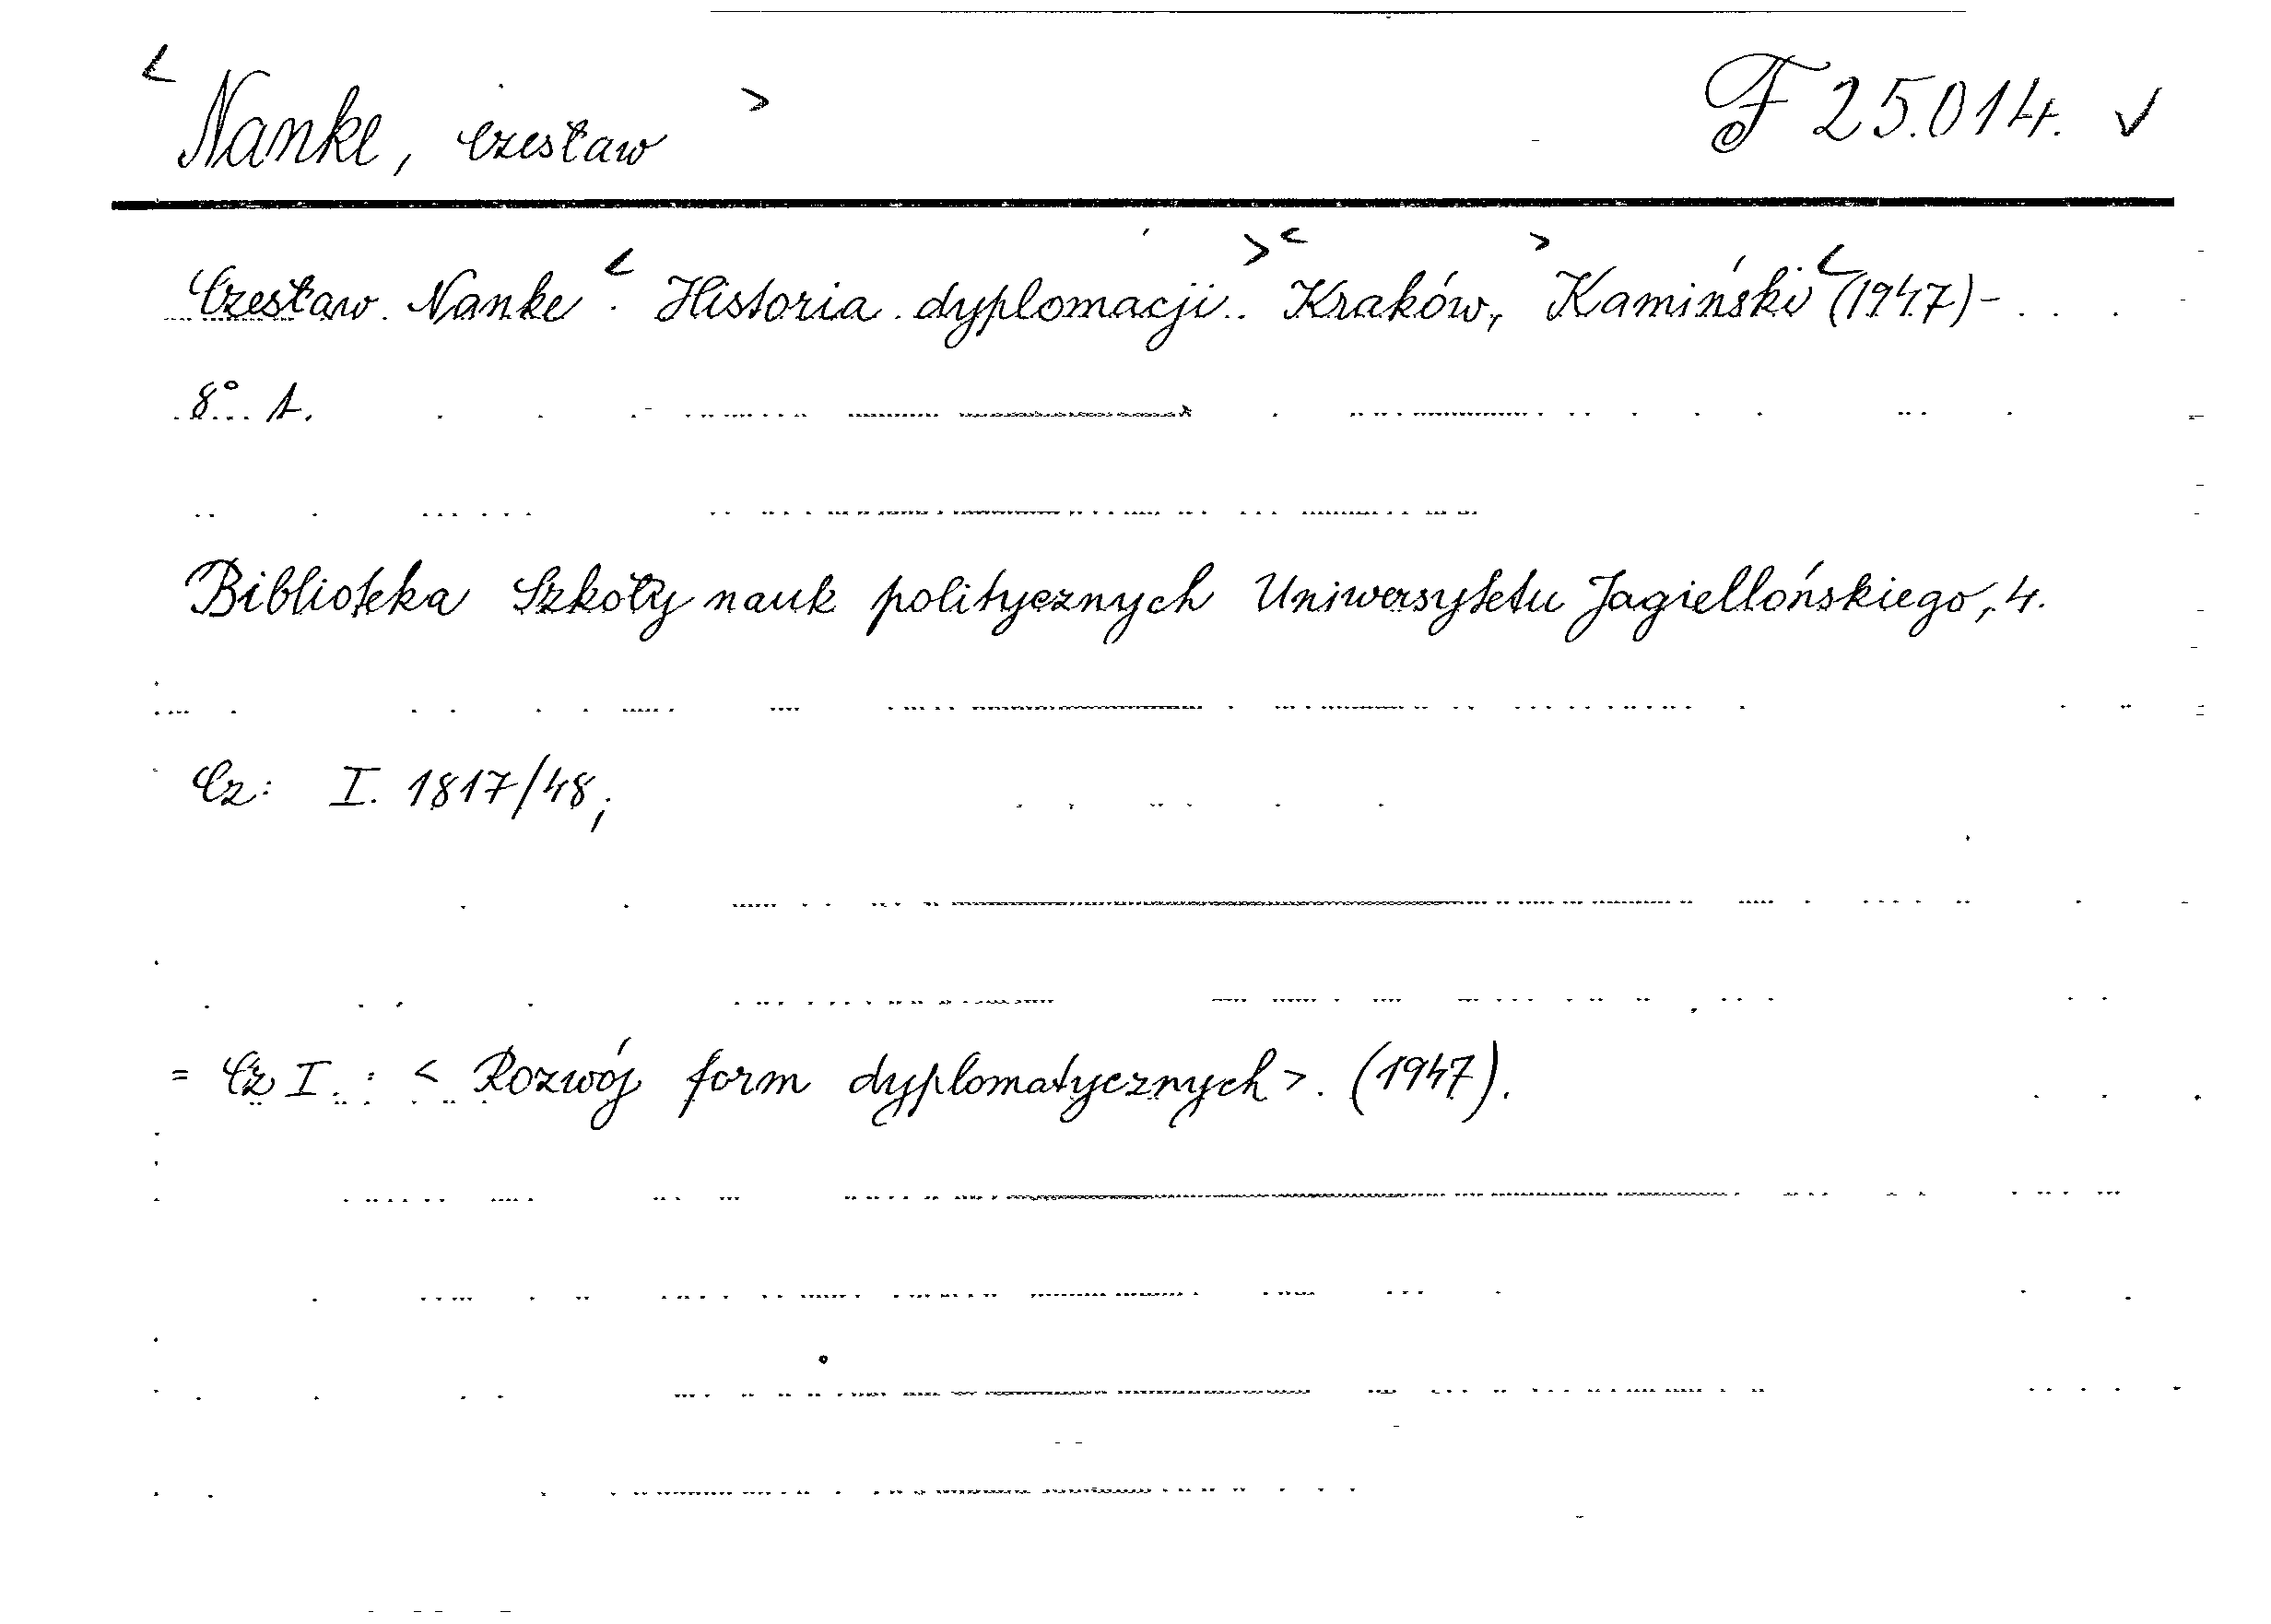 < Nanke, Czesław > F 25.014. ✓
Czesław Nanke < . Historia dyplomacji. > < Kraków, > Kamiński < (1947)-
8° A.
Biblioteka Szkoły nauk politycznych Uniwersytetu Jagiellońskiego, 4.
Cz: I. 1817/48;
= Cz I. : < Rozwój form dyplomatycznych >. (1947).